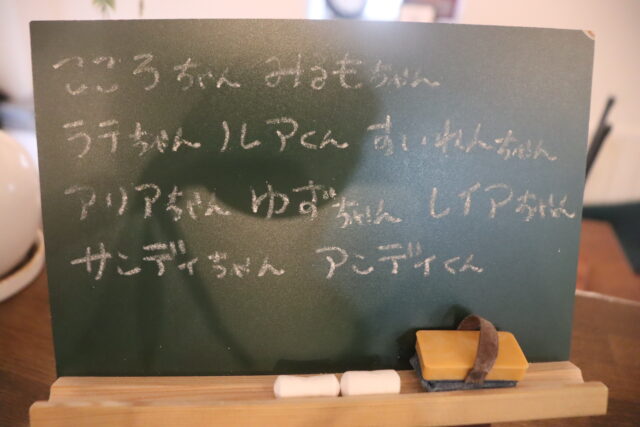 こころちゃん みるもちゃん
ラテちゃん ルアくん すいれんちゃん
アリアちゃん ゆずちゃん レイアちゃん
サンディちゃん アンディくん